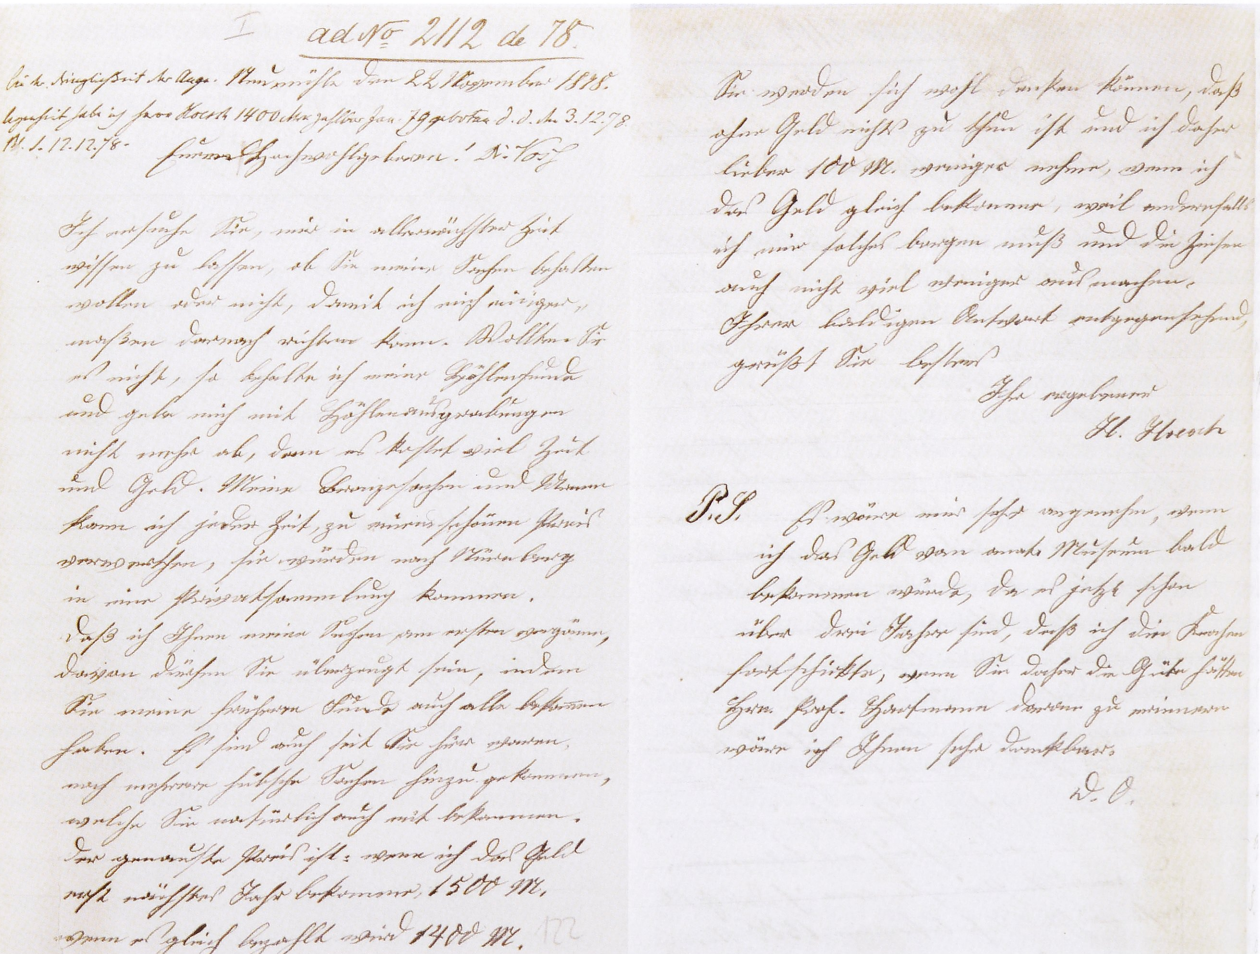 I
ad No 2112 de 78.
Bei der Dringlichkeit der Ange- Neumühle den 22 November 1878.
legenheit habe ich Herrn Hoesch 1400 Mk zahlbar Jan. 79 geboten d. d. den 3.12.78
B. 1.12.12.78.
Euer Hochwohlgeboren!
Ich ersuche Sie, mir in allernächster Zeit
wissen zu lassen, ob Sie meine Sachen behalten
wollen oder nicht, damit ich mich einiger-
maßen darnach richten kann. Wollten Sie
es nicht, so behalte ich meine Höhlenfunde
und gebe mich mit Höhlenausgrabungen
nicht mehr ab, denn es kostet viel Zeit
und Geld. Meine Bronzesachen und Urnen
kann ich jeder Zeit, zu einem schönen Preis
verwerthen, sie würden nach Nürnberg
in eine Privatsammlung kommen.
Daß ich Ihnen meine Sachen am ersten vergönne,
davon dürfen Sie überzeugt sein, indem
Sie meine früheren Funde auch alle bekommen
haben. Es sind auch seit Sie hier waren,
noch mehrere hübsche Sachen hinzu gekommen,
welche Sie natürlich auch mit bekommen.
Der genauste Preis ist: wenn ich das Geld
erst nächstes Jahr bekomme, 1500 M.
wenn es gleich bezahlt wird 1400 M.
122
Sie werden sich wohl denken können, daß
ohne Geld nichts zu thun ist und ich daher
lieber 100 M. weniger nehme, wenn ich
das Geld gleich bekomme, weil andernfalls
ich mir solches borgen muß und die Zinsen
auch nicht viel weniger ausmachen.
Ihrer baldigen Antwort entgegensehend,
grüßt Sie bestens
Ihr ergebener
H. Hoesch
P.S. Es wäre mir sehr angenehm, wenn
ich das Geld vom anat. Museum bald
bekommen würde, da es jetzt schon
über drei Jahre sind, daß ich die Sachen
fortschickte, wenn Sie daher die Güte hätten
Hrn. Prof. Hartmann daran zu erinnern
wäre ich Ihnen sehr dankbar.
D. O.